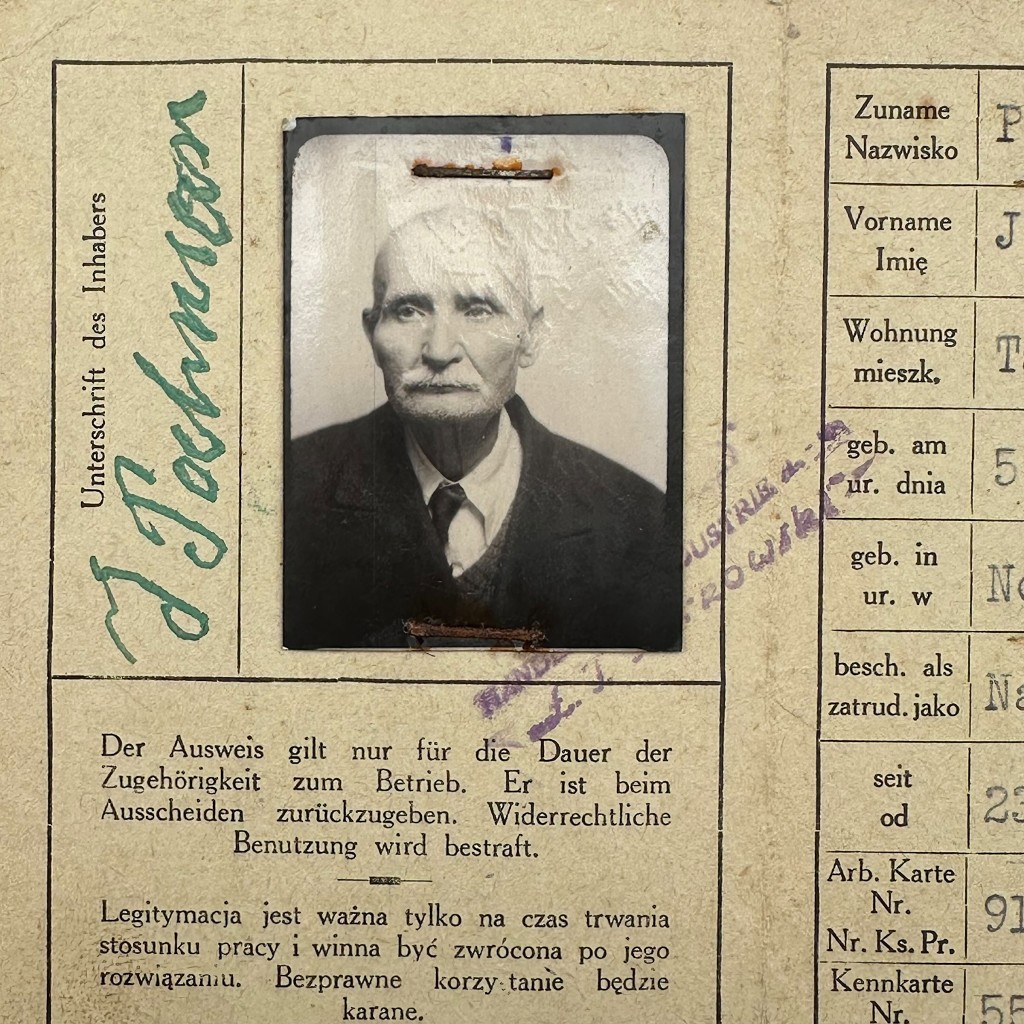 Unterschrift des Inhabers
Zuname
Nazwisko
P
Vorname
Imię
J
Wohnung
mieszk.
T
geb. am
ur. dnia
5
geb. in
ur. w
No
besch. als
zatrud. jako
Na
seit
od
23
Arb. Karte
Nr.
Nr. Ks. Pr.
91
Kennkarte
Nr.
55
Der Ausweis gilt nur für die Dauer der
Zugehörigkeit zum Betrieb. Er ist beim
Ausscheiden zurückzugeben. Widerrechtliche
Benutzung wird bestraft.
Legitymacja jest ważna tylko na czas trwania
stosunku pracy i winna być zwrócona po jego
rozwiązaniu. Bezprawne korzy tanie będzie
karane.